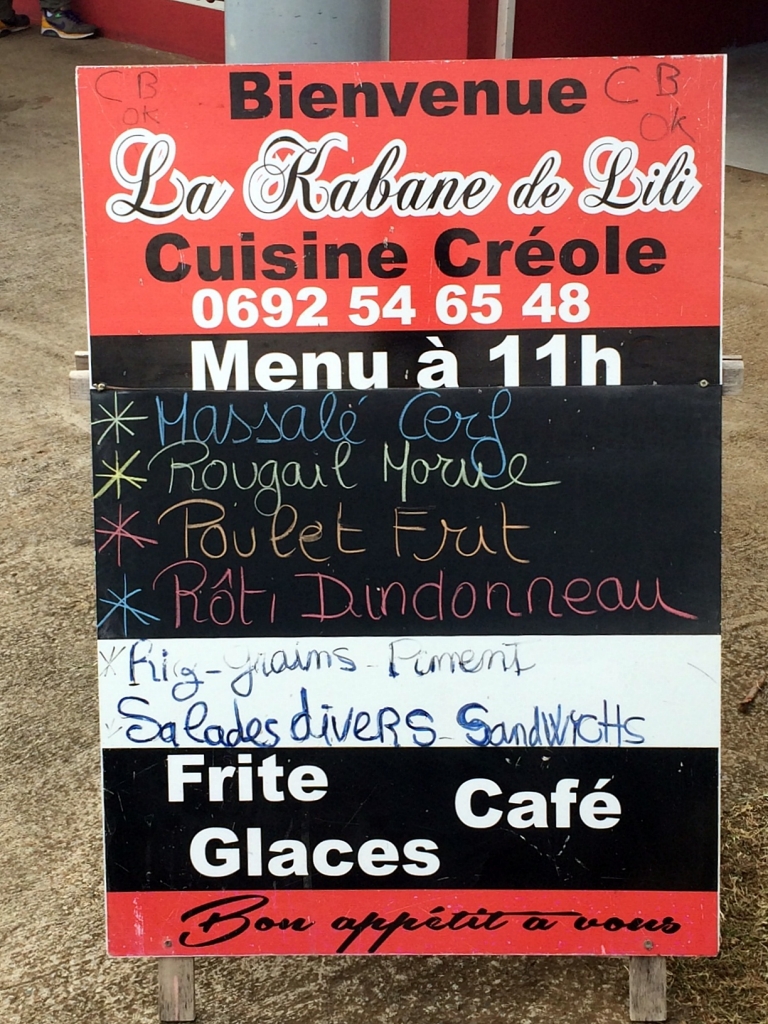 CB Bienvenue CB
OK OK
La Kabane de Lili
Cuisine Créole
0692 54 65 48
Menu à 11h
* Massalé Cerf
* Rougail Morue
* Poulet Frit
* Rôti Dindonneau
* Riz - Grains - Piment
Salades divers - Sandwichs
Frite
Café
Glaces
Bon appétit a vous